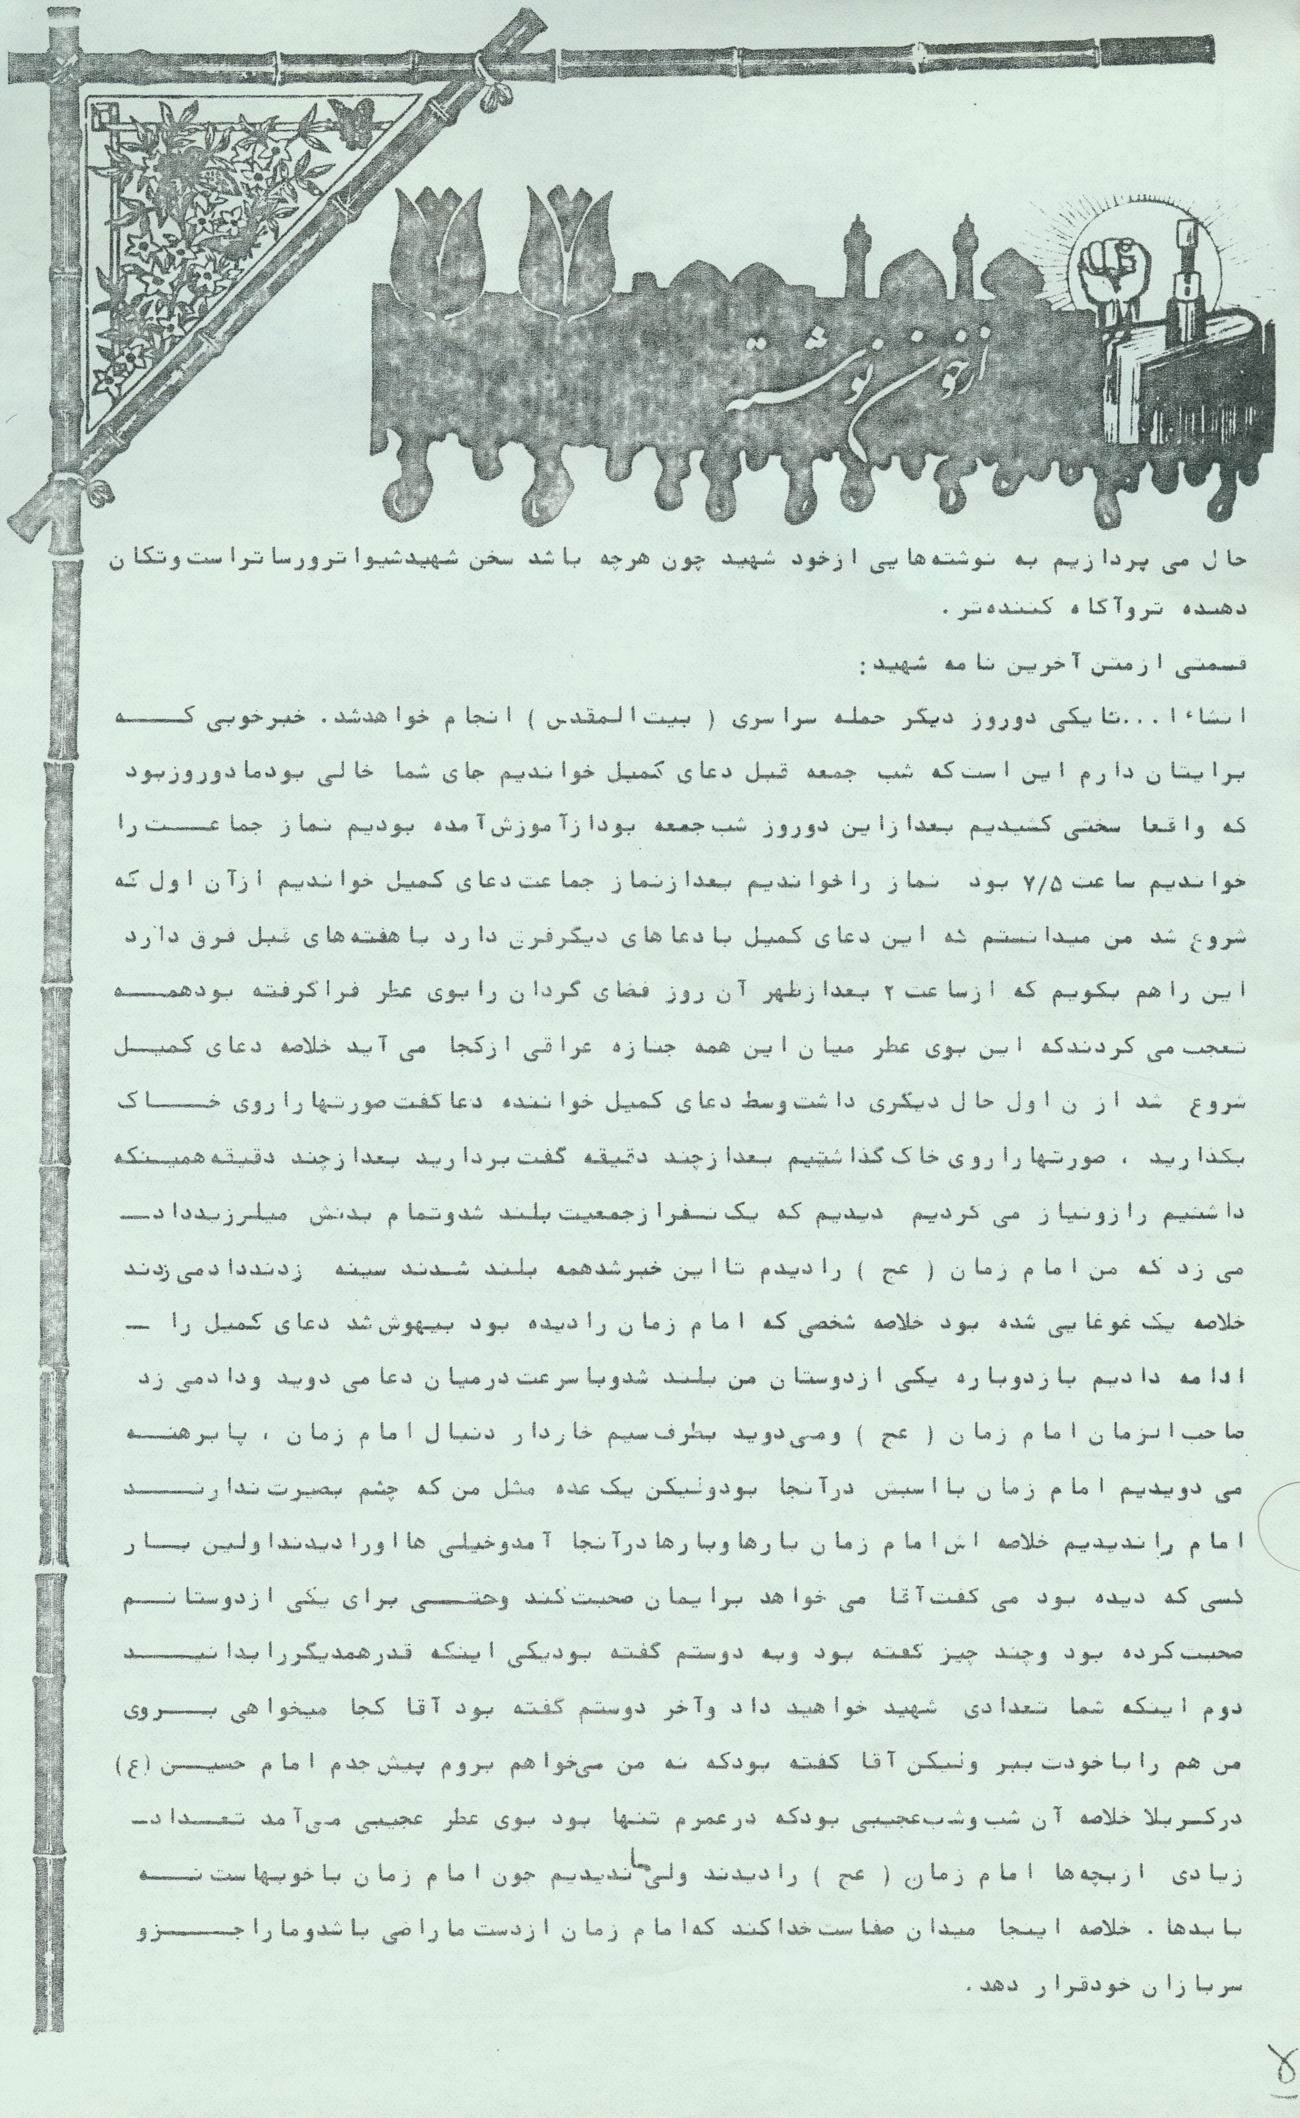 از خون نوشته
حال می پردازیم به نوشته‌هایی ازخود شهید چون هرچه باشد سخن شهیدشیواترورساتراست وتکان
دهنده تروآگاه کننده‌تر .
قسمتی ازمتن آخرین نامه شهید :
انشاءا...تایکی دوروز دیگر حمله سراسری ( بیت‌المقدس ) انجام خواهدشد. خبرخوبی کــــه
برایتان دارم این است‌که شب جمعه قبل دعای کمیل خواندیم جای شما خالی بودمادوروزبود
که واقعا سختی کشیدیم بعدازاین دوروز شب‌جمعه بودازآموزش‌آمده بودیم نماز جماعــت‌را
خواندیم ساعت ۷/۵ بود نماز راخواندیم بعدازنماز جماعت‌دعای کمیل خواندیم ازآن اول که
شروع شد من میدانستم که این دعای کمیل بادعاهای دیگرفرق دارد باهفته‌های قبل فرق دارد
این راهم بگویم که ازساعت ۲ بعدازظهر آن روز فضای گردان رابوی عطر فراگرفته بودهمـــه
تعجب‌می کردندکه این بوی عطر میان‌این همه جنازه عراقی ازکجا می‌آید خلاصه دعای کمیــل
شروع شد از ن اول حال دیگری داشت‌وسط دعای کمیل خواننده دعاگفت‌صورتهاراروی خـــاک
بگذارید ، صورتهاراروی خاک‌گذاشتیم بعدازچند دقیقه گفت‌بردارید بعدازچند دقیقه‌همینکه
داشتیم رازونیاز می کردیم دیدیم که یک‌نـفرازجمعیت‌بلند شدوتمام بدنش میلرزیدداد‌ـ
می زد که من‌امام زمان ( عج ) رادیدم تااین خبرشدهمه بلند شدند سینه زدنددادمی‌زدند
خلاصه یک‌غوغایی شده بود خلاصه شخصی‌که امام زمان رادیده بود بیهوش‌شد دعای کمیل را ـ
ادامه دادیم بازدوباره یکی ازدوستان من بلند شدوباسرعت‌درمیان دعامی دوید ودادمی زد
صاحب‌الزمان‌امام زمان ( عج ) ومی‌دوید بطرف‌سیم خاردار دنبال‌امام زمان ، پابرهنــه
می دویدیم امام زمان بااسبش درآنجا بودولیکن یک‌عده مثل من‌که چشم بصیرت‌ندارنـــد
امام راندیدیم خلاصه اش‌امام زمان بارهاوبارهادرآنجا آمدوخیلی هااورادیدنداولین بــار
کسی که دیده بود می گفت‌آقا می خواهد برایمان صحبت‌کند وحتـــی برای یکی ازدوستانــم
صحبت‌کرده بود وچند چیز گفته بود وبه دوستم گفته بودیکی اینکه قدرهمدیگررابدانیـــد
دوم اینکه شما تعدادی شهید خواهید داد وآخر دوستم گفته بود آقا کجا میخواهی بـــروی
من هم راباخودت‌ببر ولیکن‌آقا گفته بودکه نه من می‌خواهم بروم پیش‌جدم امام حسیــن (ع)
درکـربلا خلاصه آن شب‌وشب‌عجیبی بودکه درعمرم تنها بود بوی عطر عجیبی می‌آمد تعــداد‌ـ
زیادی ازبچه‌ها امام زمان ( عج ) رادیدند ولی ما ندیدیم چون امام زمان باخوبهاست‌نـــه
بابدها . خلاصه اینجا میدان صفاست‌خداکند که‌امام زمان ازدست‌ماراضی باشدوماراجـــزو
سربازان خودقرار دهد.
۵